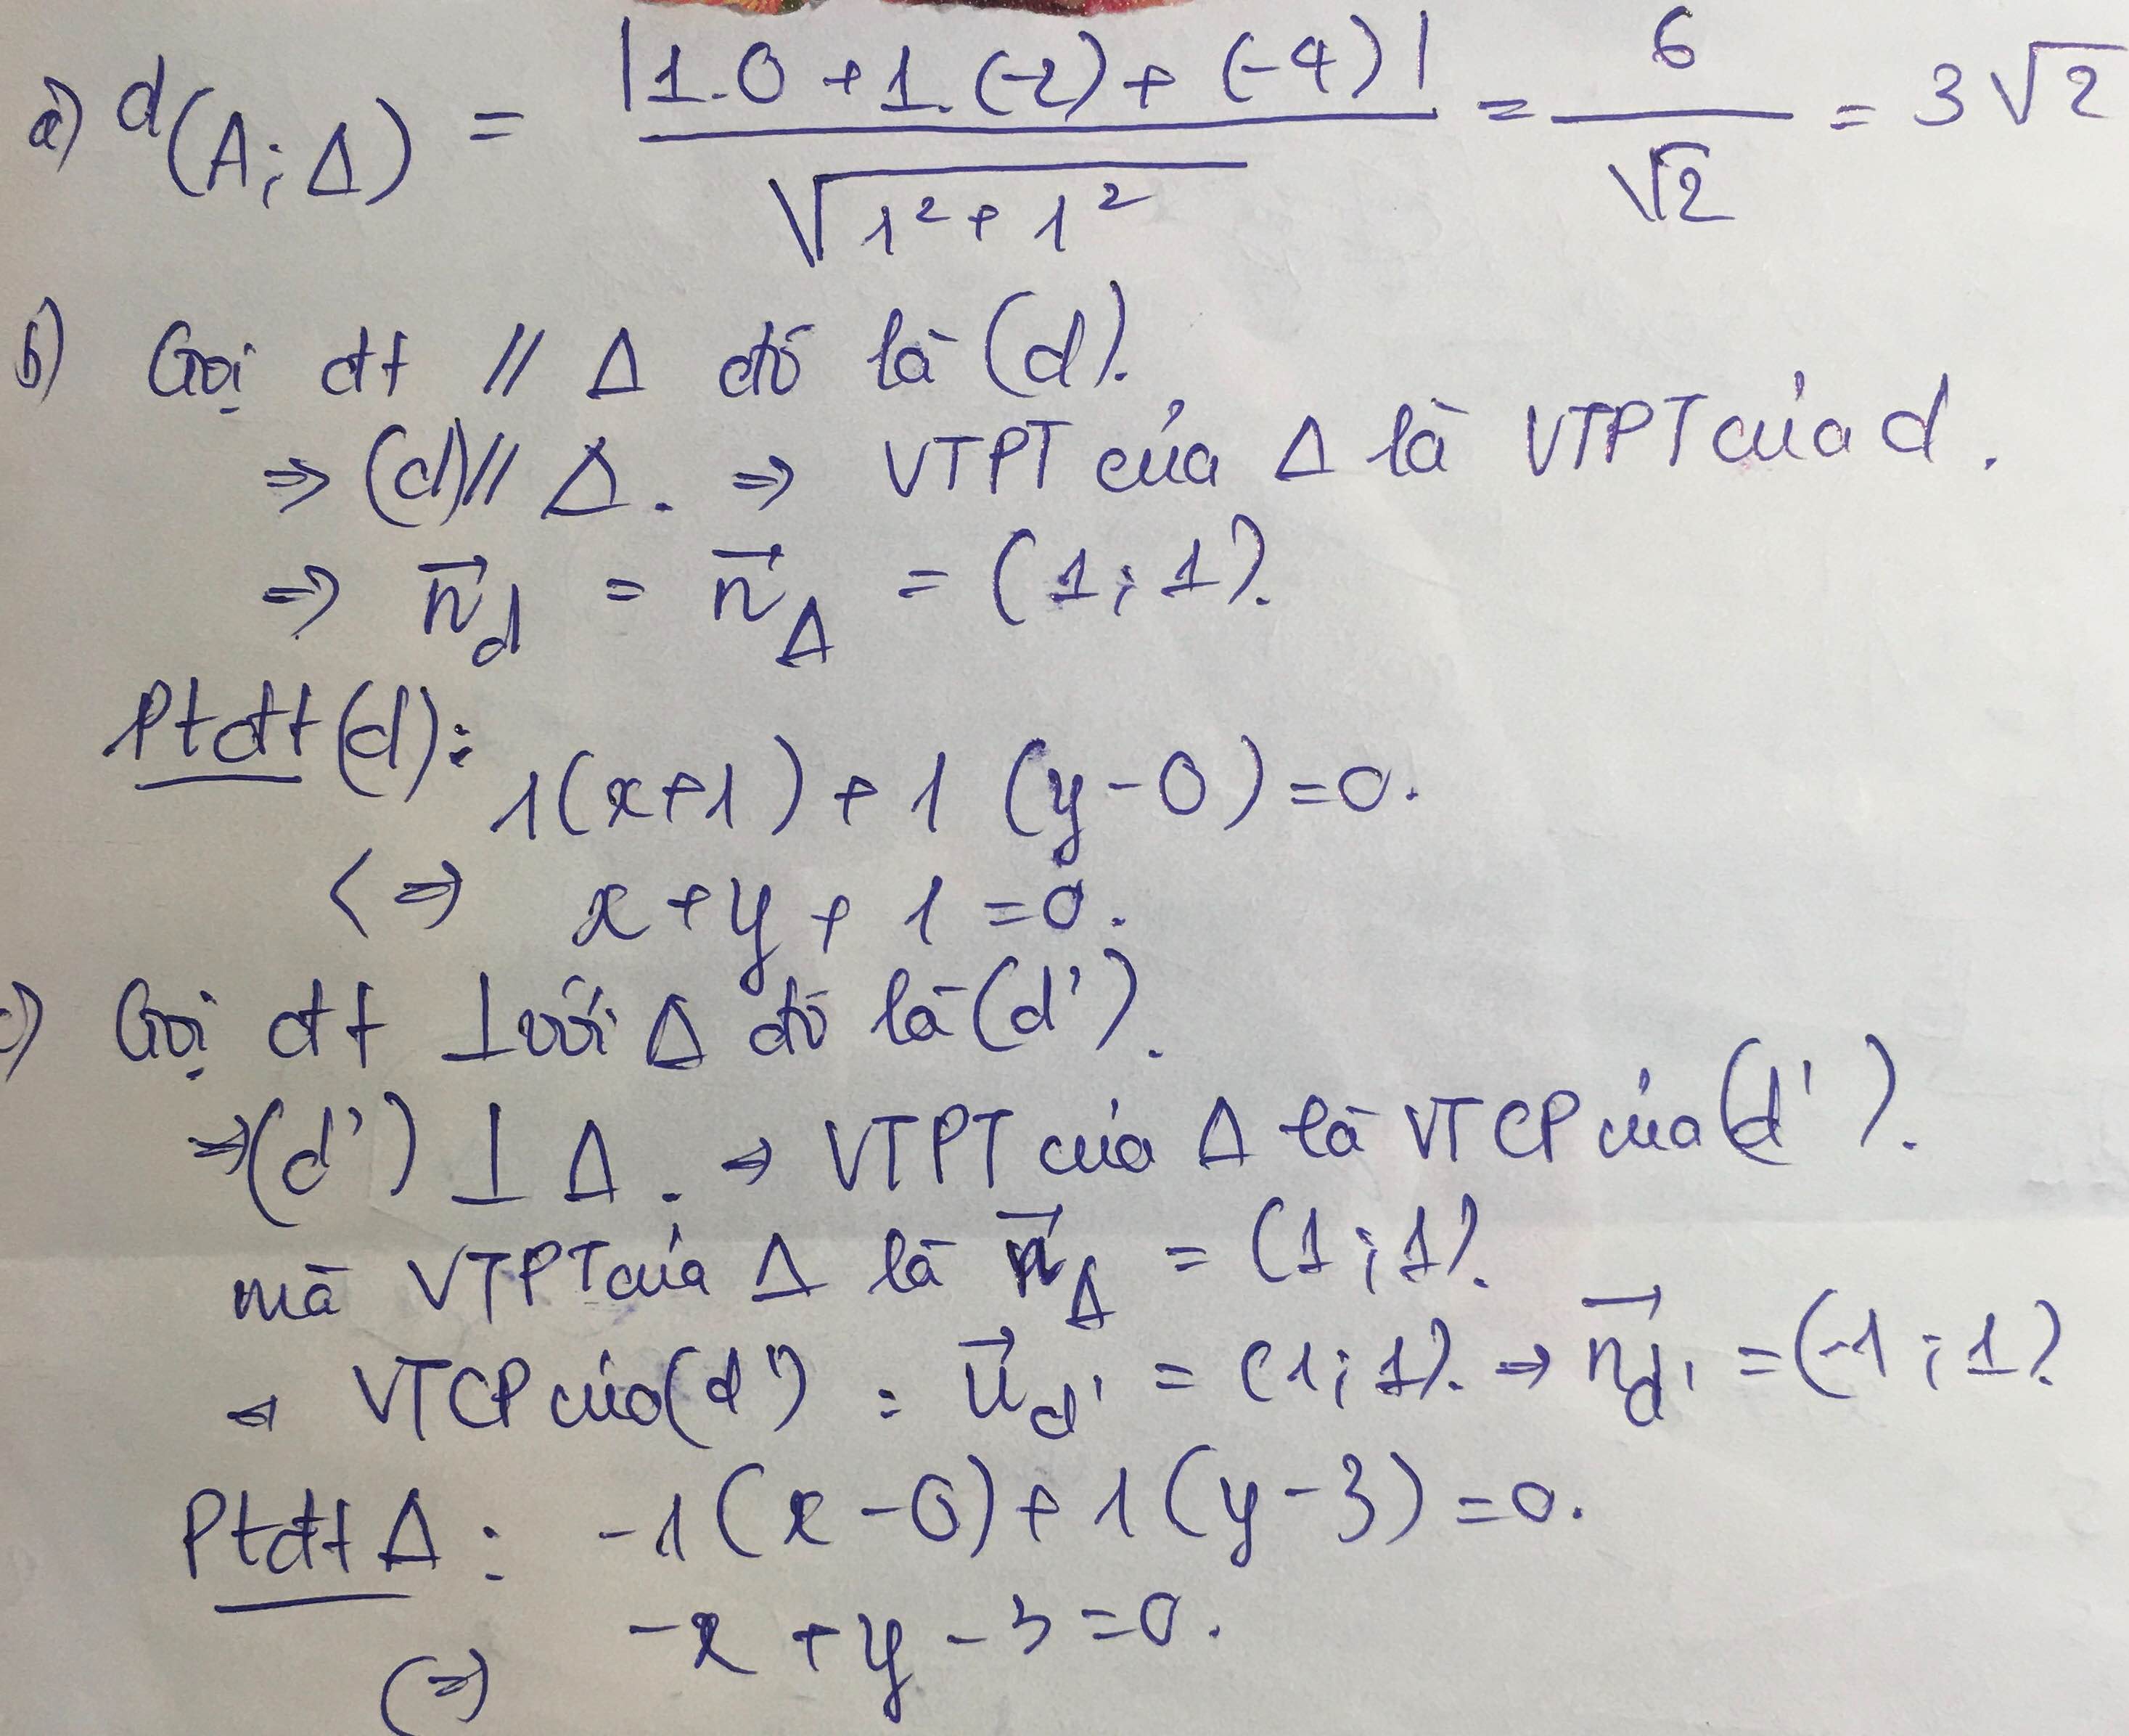 a) d(A;Δ) = |1.0 + 1.(-2) + (-4)| / √(1² + 1²) = 6/√2 = 3√2
b) Gọi đt // Δ đó là (d).
⇒ (d) // Δ. ⇒ VTPT của Δ là VTPT của d.
⇒ n⃗d = n⃗Δ = (1; 1).
Ptđt (d): 1(x+1) + 1(y-0) = 0.
<⇒ x + y + 1 = 0.
c) Gọi đt ⊥ với Δ đó là (d').
⇒ (d') ⊥ Δ. ⇒ VTPT của Δ là VTCP của (d').
mà VTPT của Δ là n⃗Δ = (1; 1).
⇒ VTCP của (d') : u⃗d' = (1; 1). ⇒ n⃗d' = (-1; 1).
Ptđt Δ: -1(x-0) + 1(y-3) = 0.
(⇒) -x + y - 3 = 0.